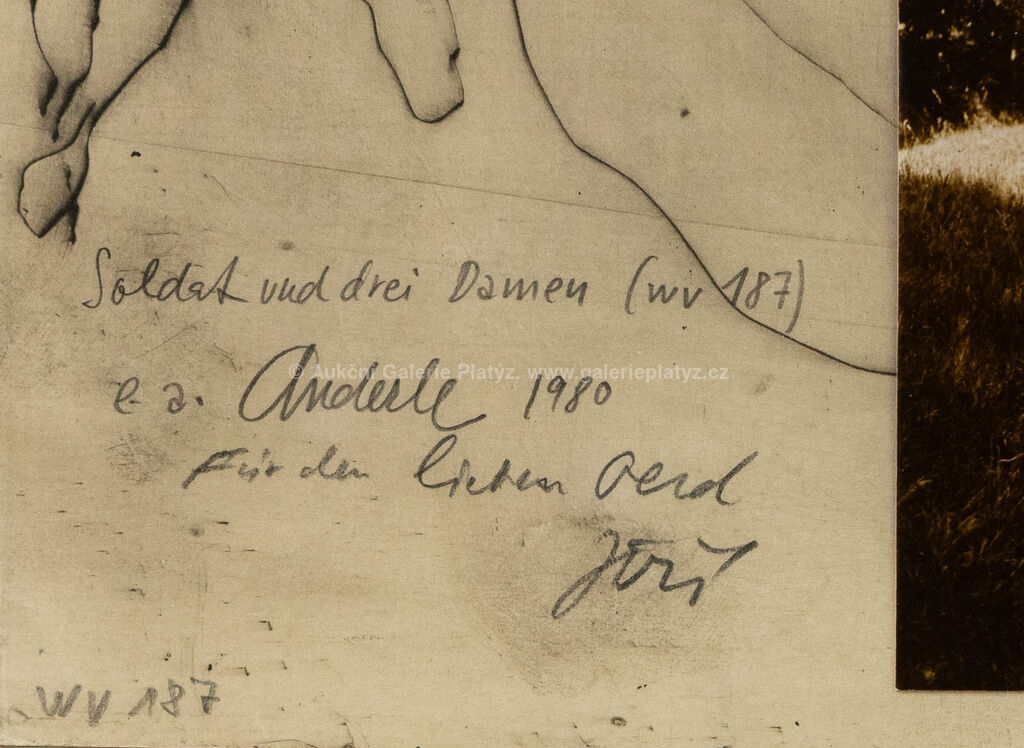 Soldat und drei Damen (WV 187)
© Aukční Galerie Platýz, www.galerieplatyz.cz
e. a. Anderle 1980
Für den lieben Gerd
Jiří
WV 187